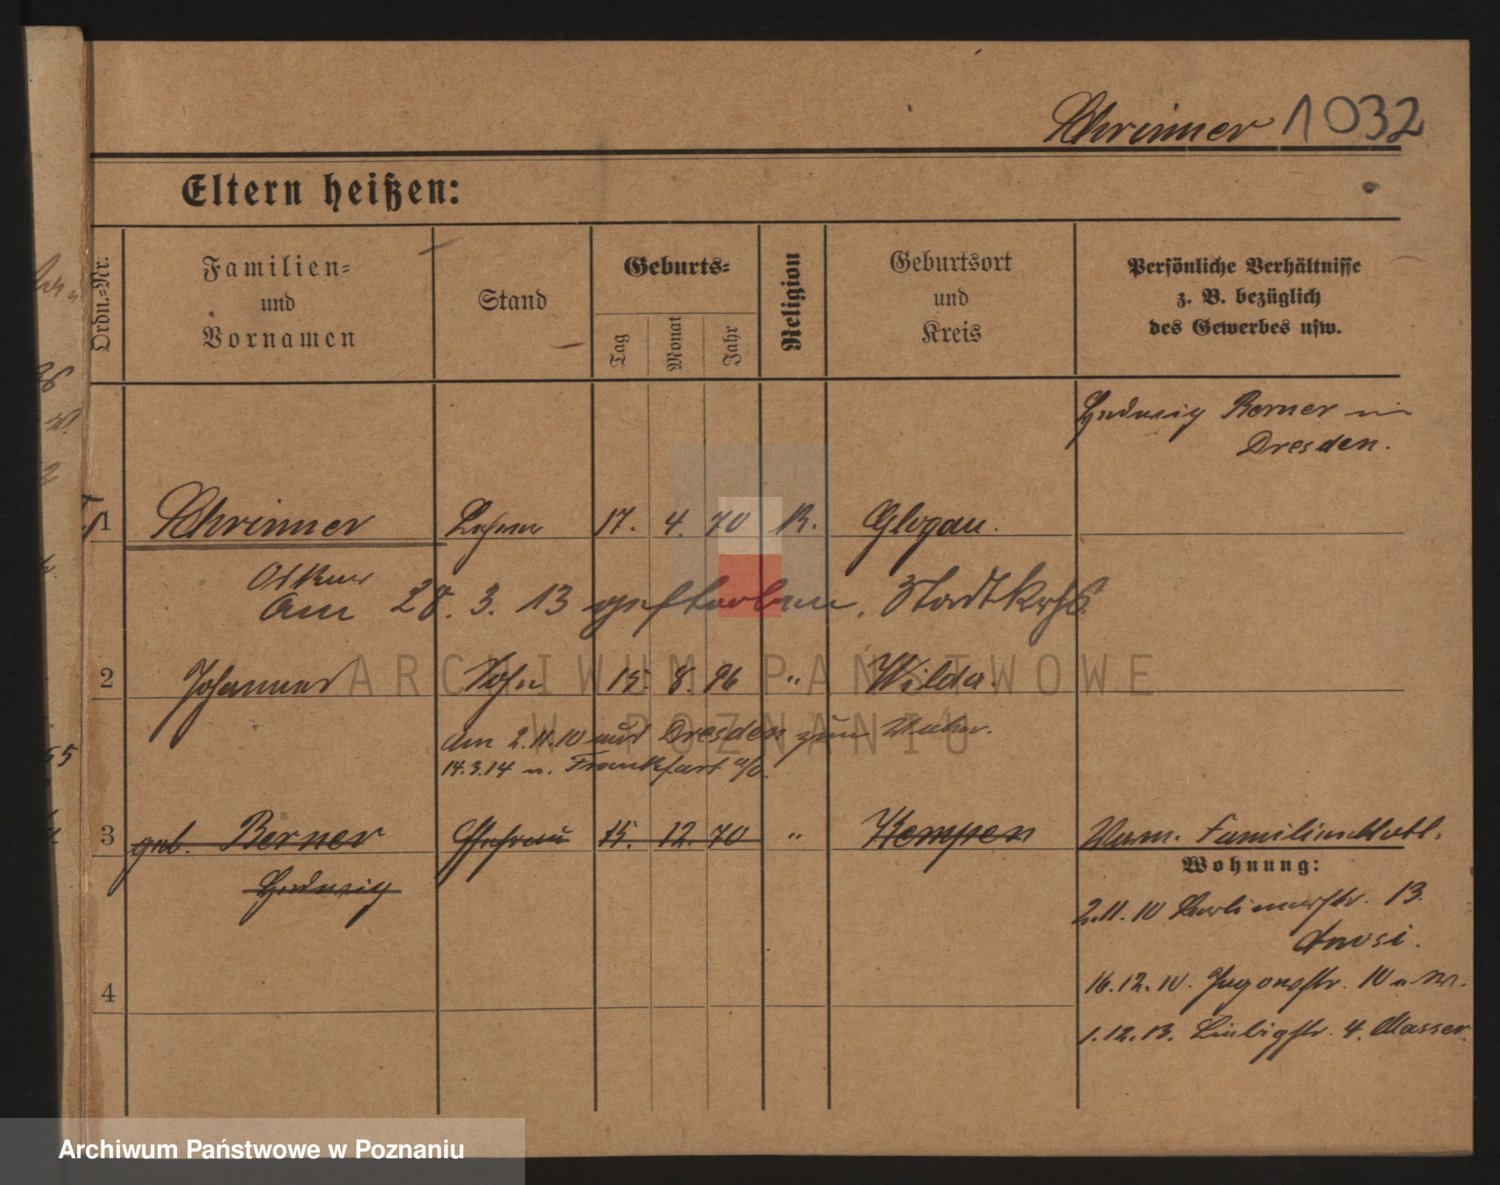 Schrinner 1032
Eltern heißen:
Ordn.-Nr.
Familien-
und
Vornamen
Stand
Geburts-
Tag
Monat
Jahr
Religion
Geburtsort
und
Kreis
Persönliche Verhältnisse
z. B. bezüglich
des Gewerbes usw.
Hedwig Berner in
Dresden.
1 Schrinner Lehrer 17. 4. 70 K. Glogau.
Oskar
Am 28. 3. 13 gestorben, Stadtkrhs.
2 Johannes Sohn 15. 8. 96 " Wilda.
Am 2.11.10 aus Dresden zum Vater.
14.3.14 n. Frankfurt a/O.
3 geb. Berner Ehefrau 15. 12. 70 " Kempen
Hedwig
Wohnung:
2.11.10 13.
16.12.10. 10
1.12.13. Liebigstr. 4. Masser.
4
ARCHIWUM PAŃSTWOWE
W POZNANIU
55
Archiwum Państwowe w Poznaniu